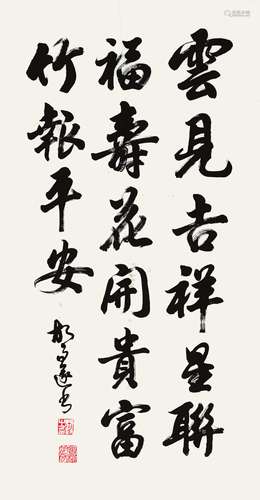 雲見吉祥星聯
福壽花開貴富
竹報平安